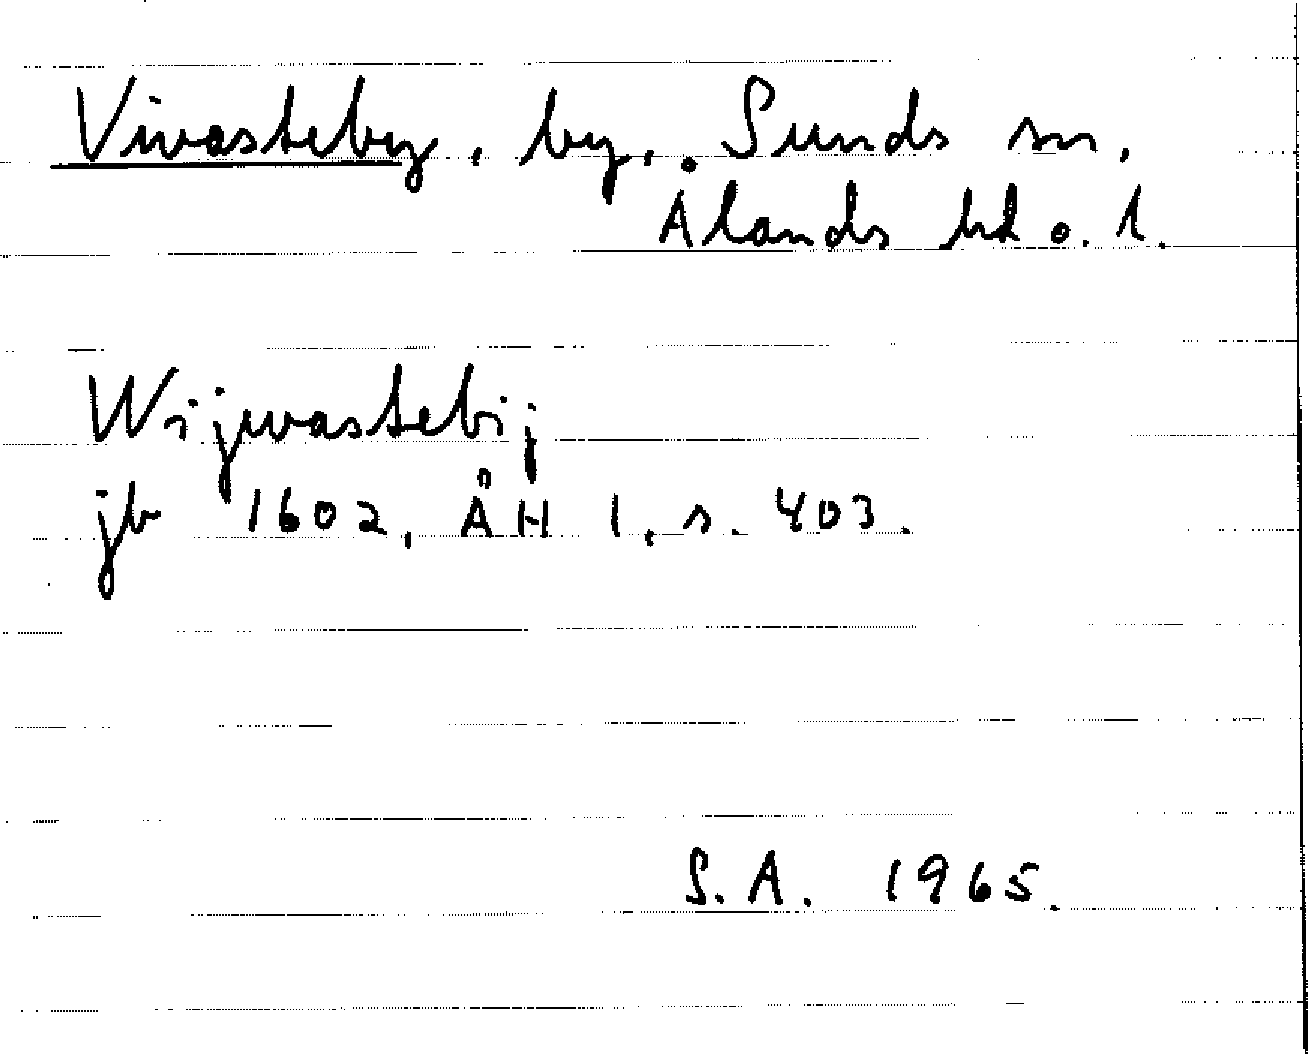 Vivasteby, by, Sunds sn,
Ålands hd o. l.
Wijwastebij
jb 1602, ÅH I, s. 403.
S.A. 1965.